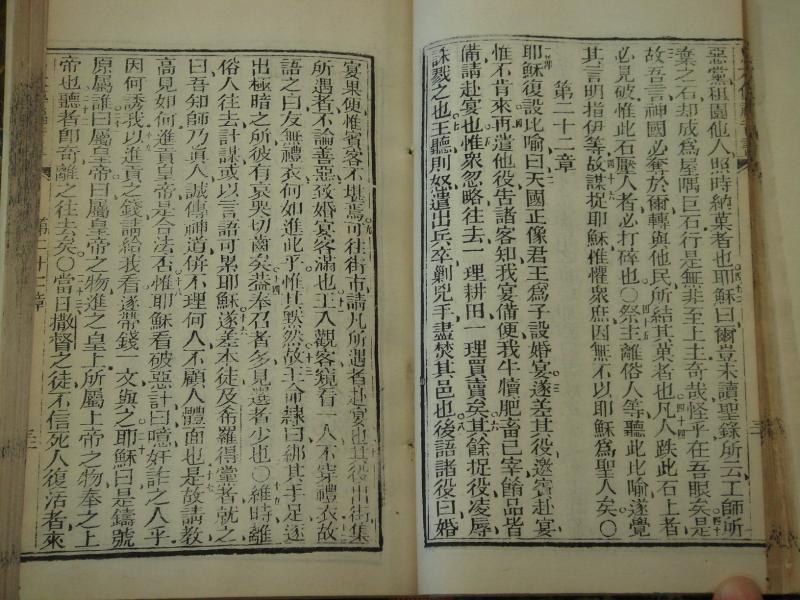 惡黨租園他人照時納菓者也耶穌曰爾豈未讀聖錄所云工師所
棄之石却成爲屋隅巨石行是無非至上主奇哉怪乎在吾眼矣是
故吾言神國必奪於爾轉與他民所結其菓者也凡人跌此石上者
必見破惟此石壓人者必打碎也〇祭主離俗人等聽此比喻遂覺
其言明指伊等故謀捉耶穌惟懼衆庶因無不以耶穌爲聖人矣〇
第二十二章
耶穌復設比喻曰天國正像君王爲子設婚宴遂差其役邀賓赴宴
惟不肯來再遣他役告諸客知我宴備便我牛犢肥畜已宰餚品皆
備請赴宴也惟衆忽略往去一理耕田一理買賣矣其餘捉役凌辱
誅戮之也王聽則怒遣出兵卒剿兇手盡焚其邑也後語諸役曰婚
宴果便惟賓客不堪焉可往街市請凡所遇者赴宴也其役出街集
所遇者不論善惡致婚宴客滿也王入觀客窺看一人不穿禮衣故
語之曰友無禮衣何如進此乎惟其默然故王命隸曰綁其手足逐
出極暗之所彼有哀哭切齒矣蓋奉召者多見選者少也〇維時離
俗人往去計謀或以言語可累耶穌遂差本徒及希羅得黨者就之
曰吾知師乃眞人誠傳神道併不理何人不顧人體面也是故請教
高見如何進貢皇帝是合法否惟耶穌看破惡計曰噫奸詐之人乎
因何誘我以進貢之錢請給我看遂帶錢一文與之耶穌曰是鑄號
原屬誰曰屬皇帝曰屬皇帝之物進之皇上所屬上帝之物奉之上
帝也聽者即奇離之往去矣〇當日撒督之徒不信死人復活者來
第二十二章